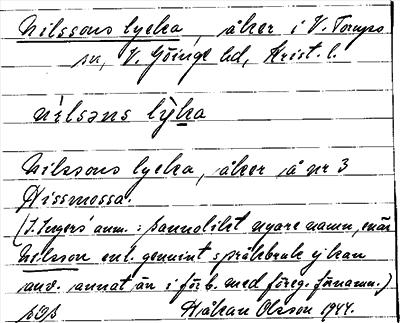 Nilssons lycka, åker i V. Torups
sn, V. Göinge hd, Krist. l.
nilsəns lyka
Nilssons lycka, åker å nr 3
Hissmossa.
(I. Ingers' anm.: sannolikt nyare namn, enär
Nilsson enl. genuint språkbruk ej kan
anv. annat än i förb. med föreg. förnamn.)
Håkan Olsson 1944.